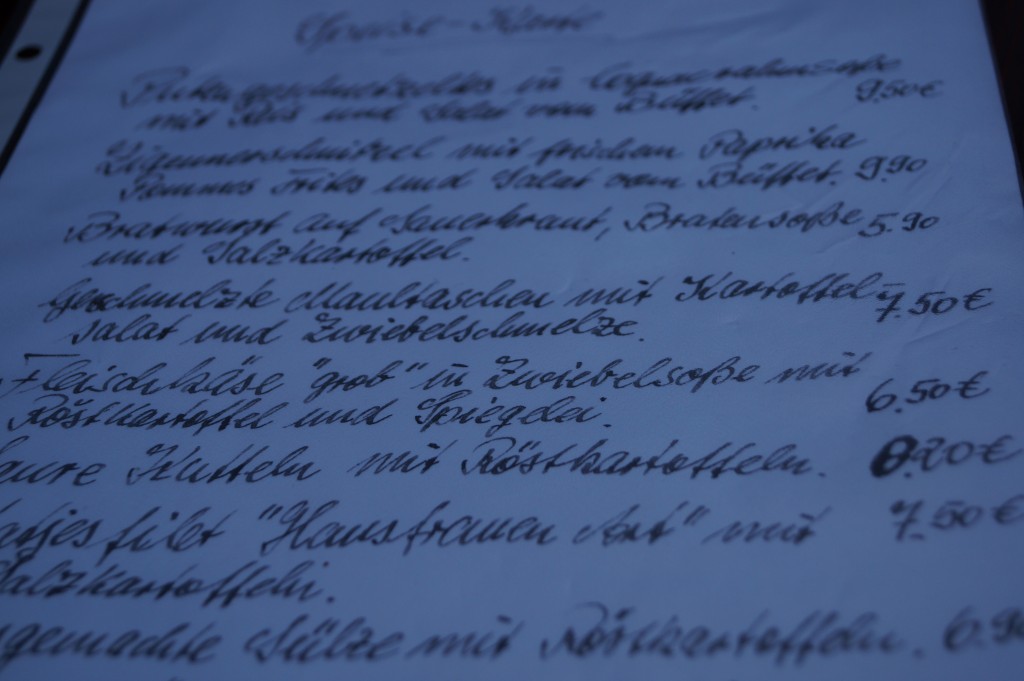 Speise-Karte
Putengeschnetzeltes in Cognacrahmsoße
mit Reis und Salat vom Büffet. 9.50€
Zigeunerschnitzel mit frischen Paprika
Pommes Frites und Salat vom Büffet. 9.90
Bratwurst auf Sauerkraut, Bratensoße 5.90
und Salzkartoffel.
Geschmelzte Maultaschen mit Kartoffel- 7.50€
salat und Zwiebelschmelze.
Fleischkäse "grob" in Zwiebelsoße mit
Röstkartoffel und Spiegelei. 6.50€
aure Kutteln mit Röstkartoffeln. .20€
atjesfilet "Hausfrauen Art" mit 7.50€
Salzkartoffeln.
gemachte Sülze mit Röstkartoffeln. 6.90